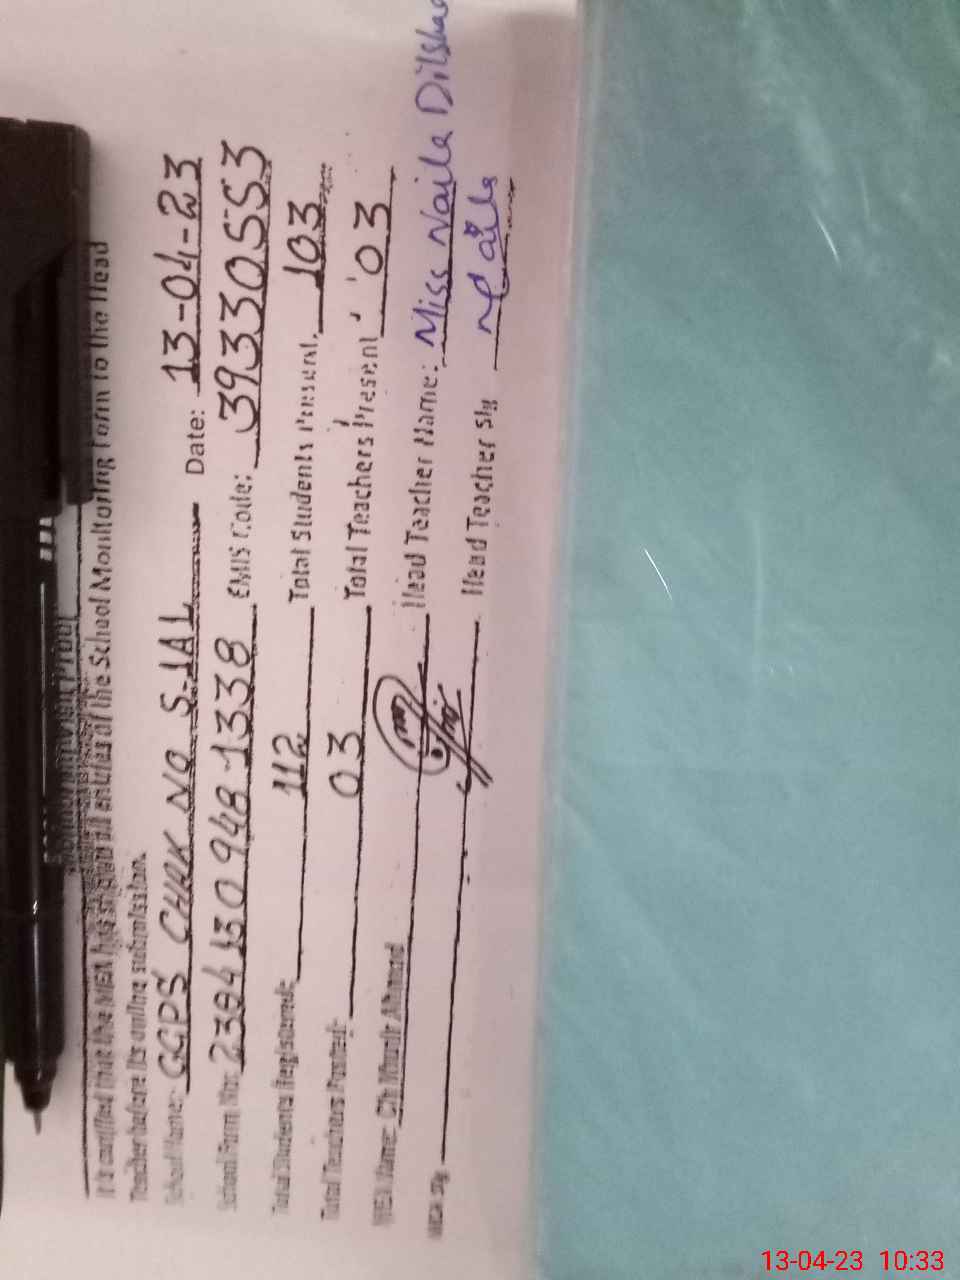 Monitoring Visit Proof
It is certified that the MEA has shown all entries of the School Monitoring Form to the Head
Teacher before its online submission.
School Name:- GGPS CHAK NO 5-1AL Date: 13-04-23
School Form No: 2384150948-1338 EMIS Code: 39330553
Total Students Registered: 112 Total Students Present. 103
Total Teachers Posted:- 03 Total Teachers Present 03
MEA Name: Ch Munir Ahmad Head Teacher Name: Miss Naila Dilshad
MEA Sig Head Teacher Sig Naila
13-04-23 10:33